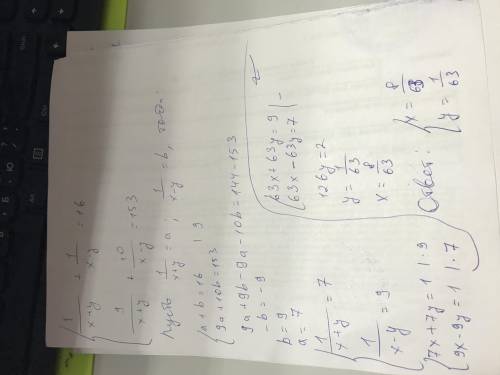 { 1/(x+y) + 1/(x-y) = 16
{ 9/(x+y) + 10/(x-y) = 153
Пусть 1/(x+y) = a; 1/(x-y) = b, тогда:
{ a+b=16 | 9
{ 9a+10b=153
9a+9b-9a-10b=144-153
-b=-9
b=9
a=7
{ 1/(x+y) = 7
{ 1/(x-y) = 9
{ 7x+7y=1 |·9
{ 9x-9y=1 |·7
{ 63x+63y=9 | -
{ 63x-63y=7 |
126y=2
y=1/63
x=8/63
Ответ: { x=8/63
{ y=1/63